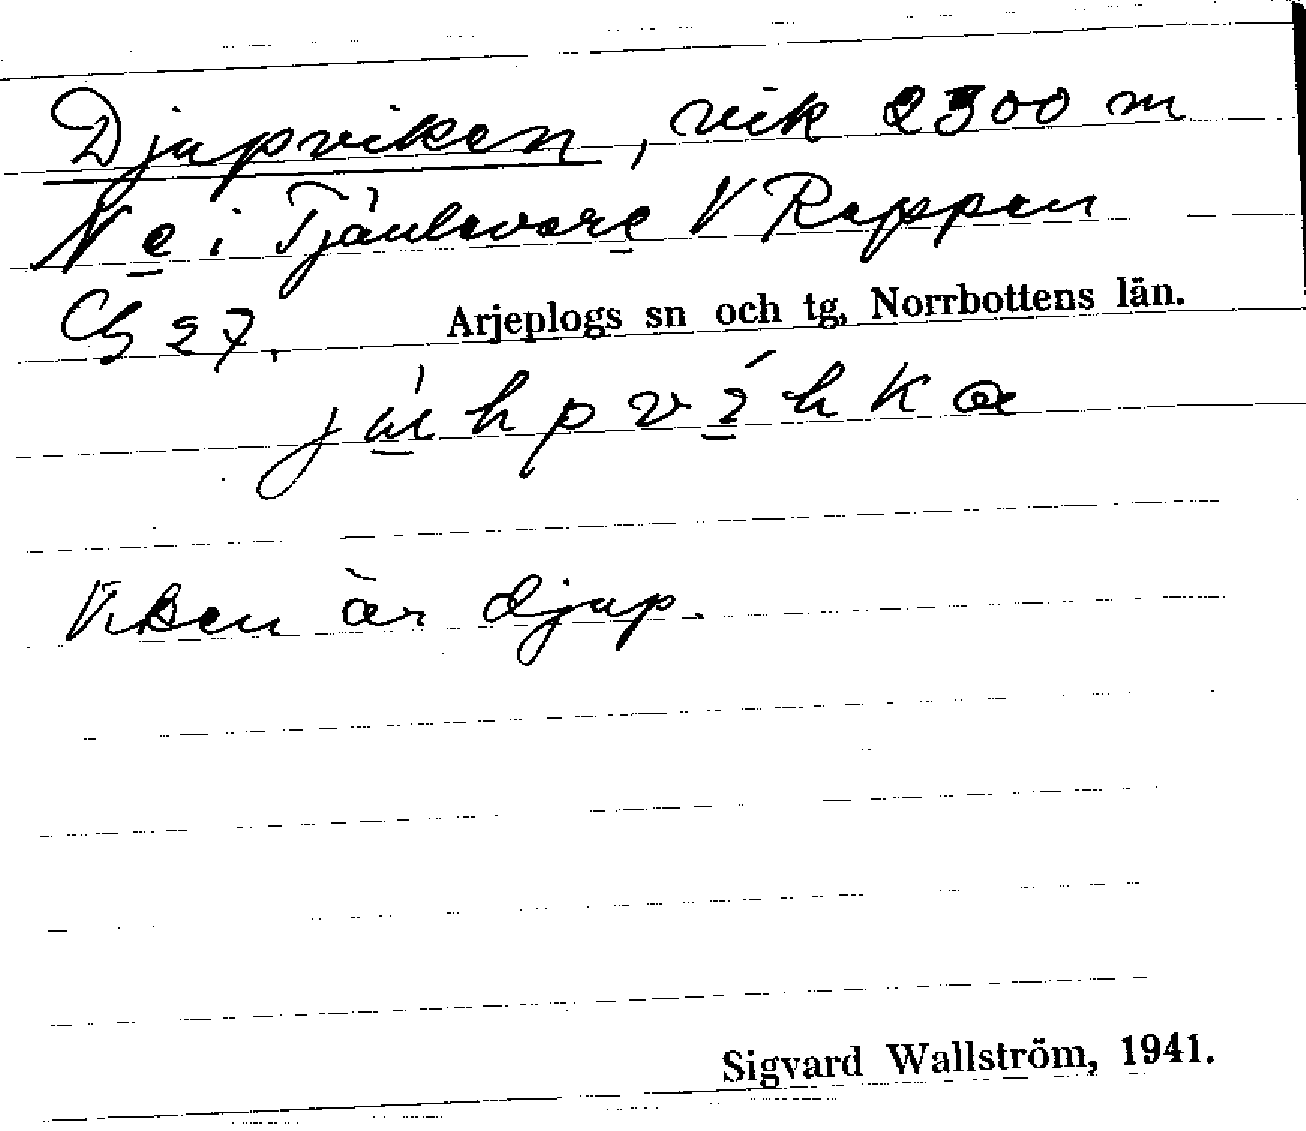 Djupviken, vik 2300 m
N e i Tjäulevare V Rappen
Cb 27. Arjeplogs sn och tg, Norrbottens län.
júhpvíhka
Viken är djup.
Sigvard Wallström, 1941.